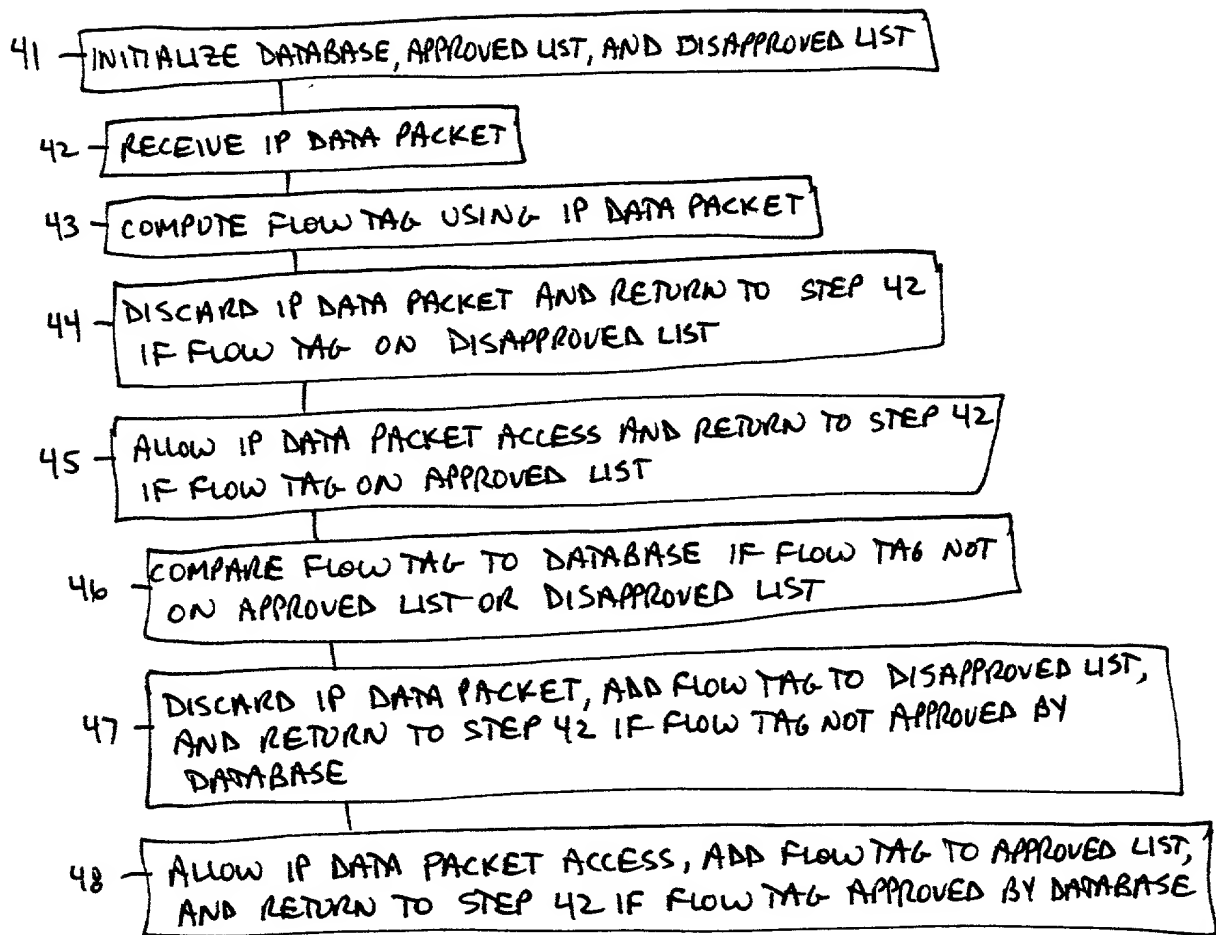 41 INITIALIZE DATABASE, APPROVED LIST, AND DISAPPROVED LIST
42 RECEIVE IP DATA PACKET
43 COMPUTE FLOW TAG USING IP DATA PACKET
44 DISCARD IP DATA PACKET AND RETURN TO STEP 42
IF FLOW TAG ON DISAPPROVED LIST
45 ALLOW IP DATA PACKET ACCESS AND RETURN TO STEP 42
IF FLOW TAG ON APPROVED LIST
46 COMPARE FLOW TAG TO DATABASE IF FLOW TAG NOT
ON APPROVED LIST OR DISAPPROVED LIST
47 DISCARD IP DATA PACKET, ADD FLOW TAG TO DISAPPROVED LIST,
AND RETURN TO STEP 42 IF FLOW TAG NOT APPROVED BY
DATABASE
48 ALLOW IP DATA PACKET ACCESS, ADD FLOW TAG TO APPROVED LIST,
AND RETURN TO STEP 42 IF FLOW TAG APPROVED BY DATABASE